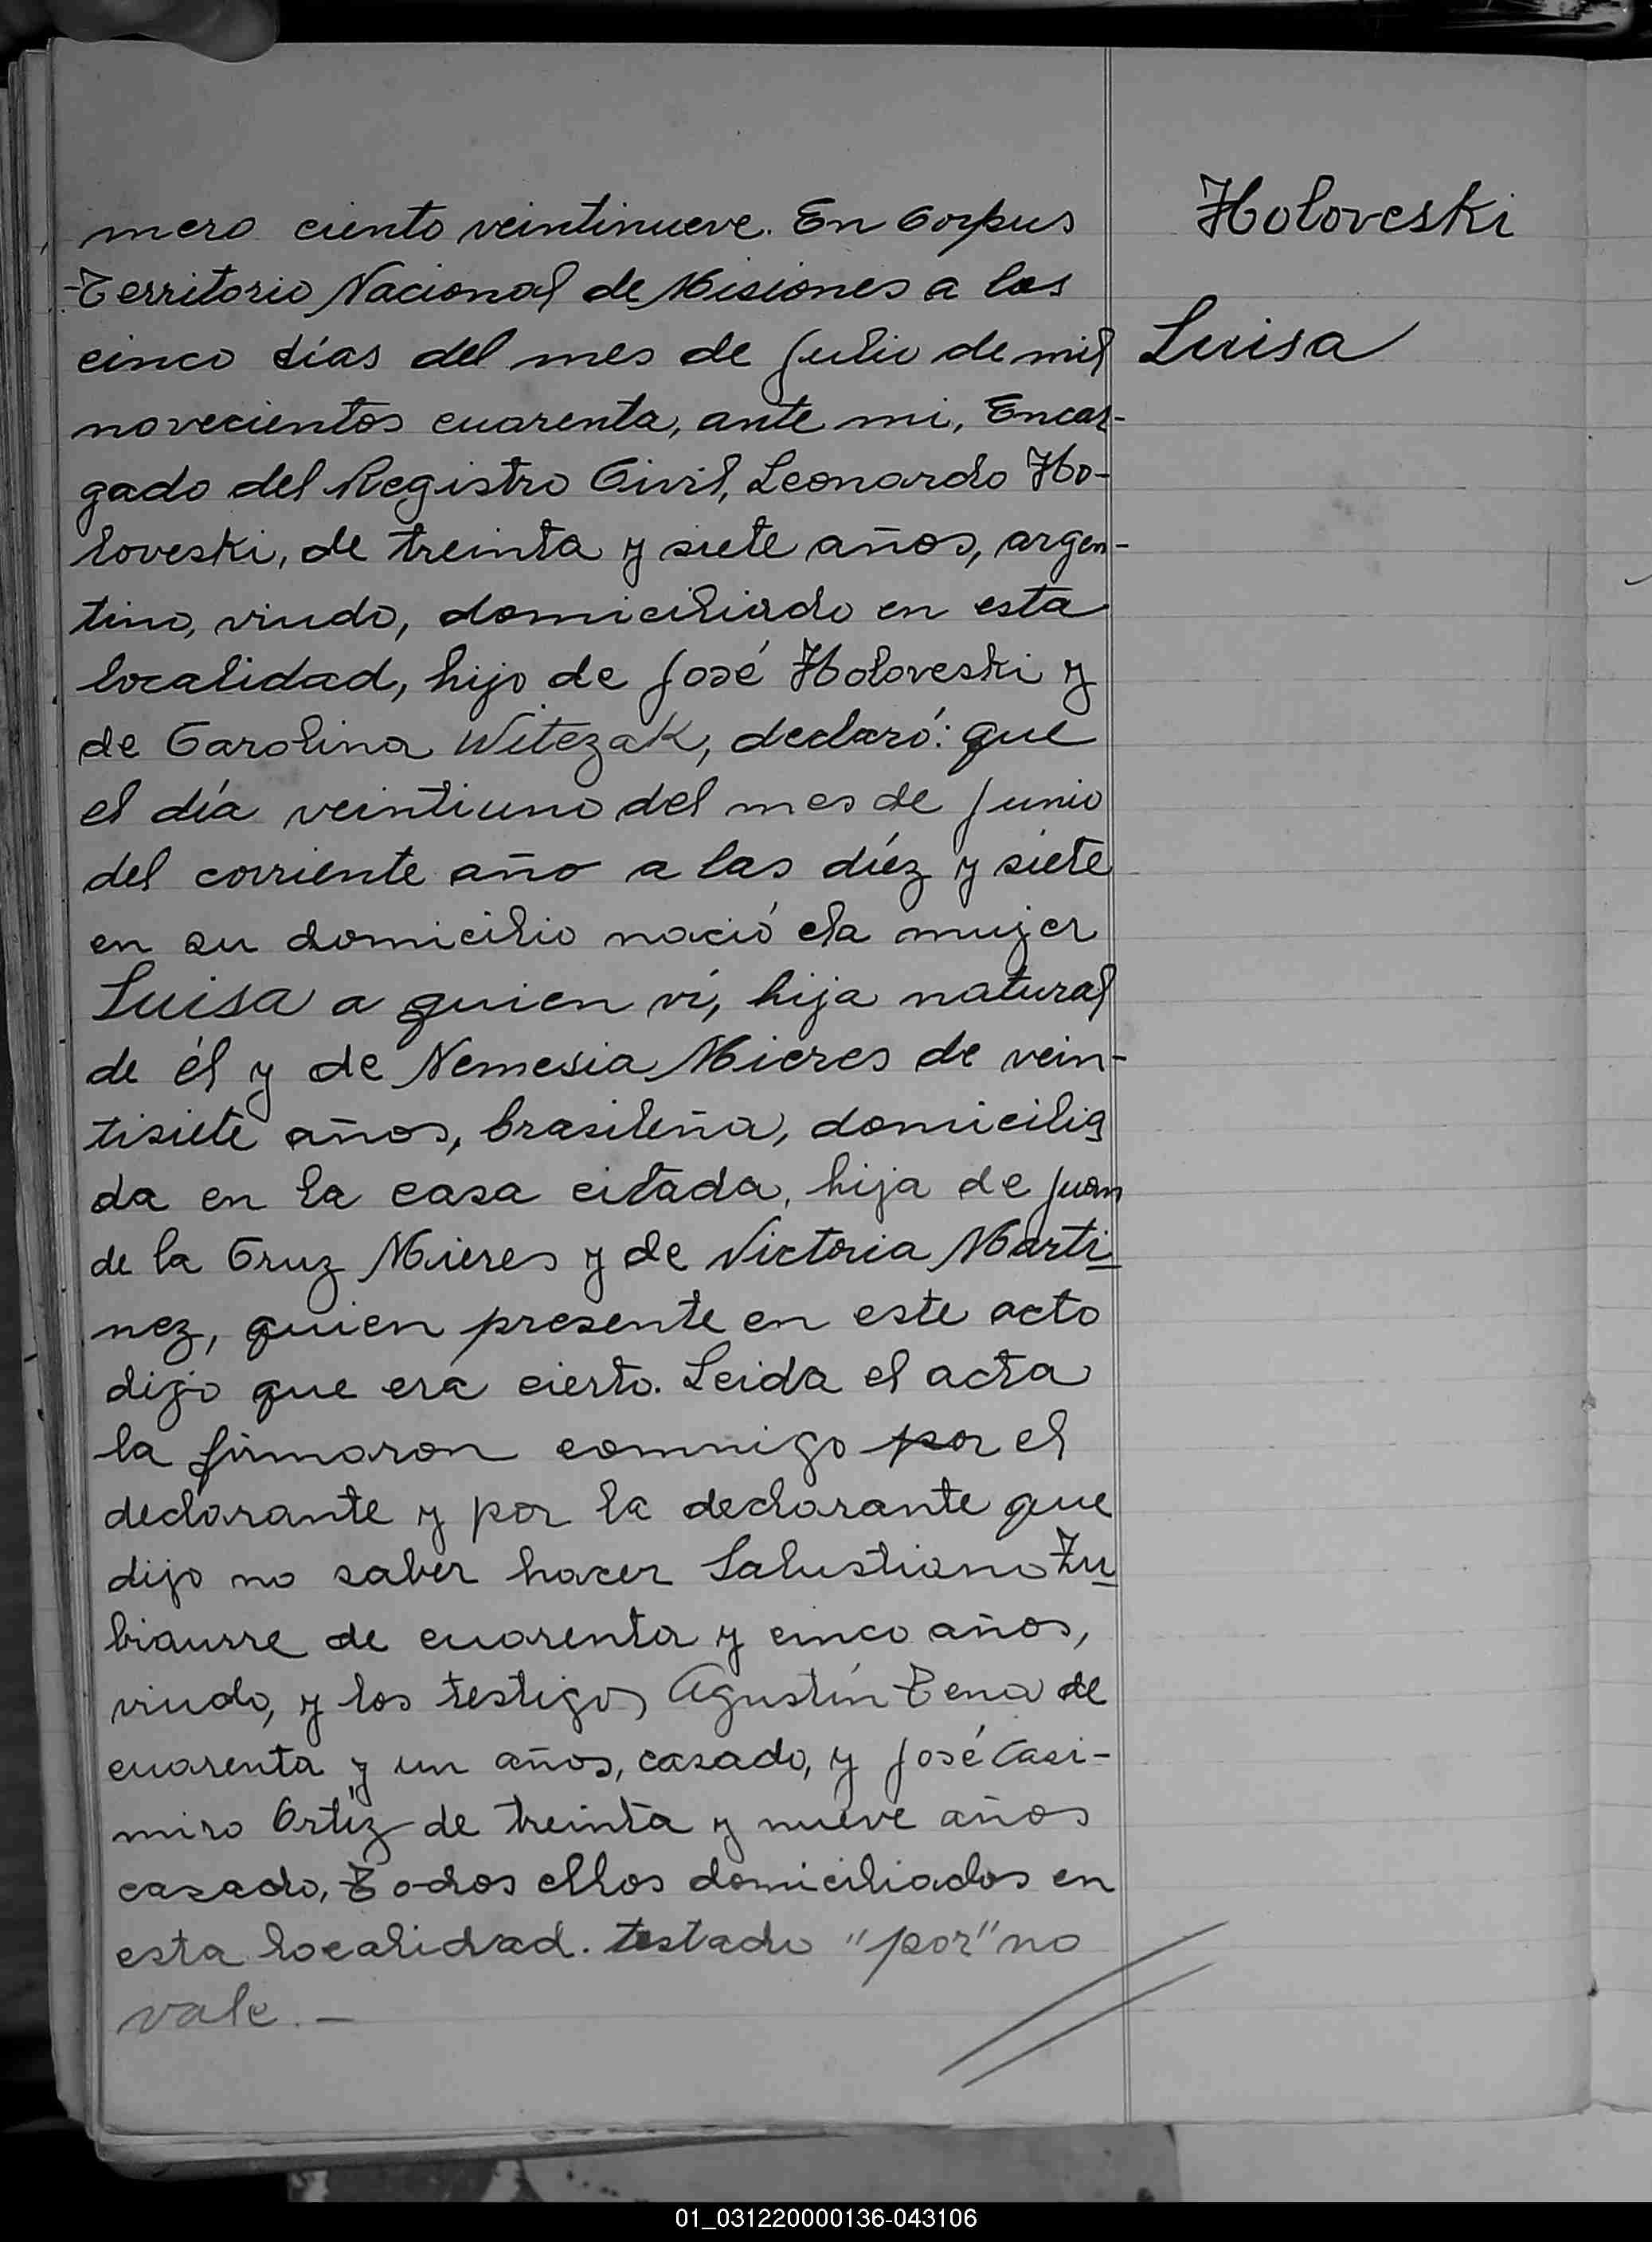 mero ciento veintinueve. En Corpus
Holoveski
Territorio Nacional de Misiones a los
cinco días del mes de Julio de mil
Luisa
novecientos cuarenta, ante mi, Encar-
gado del Registro Civil, Leonardo Ho-
loveski, de treinta y siete años, argen-
tino, viudo, domiciliado en esta
localidad, hijo de José Holoveski y
de Carolina Witczak, declaró: que
el día veintiuno del mes de Junio
del corriente año a las diéz y siete
en su domicilio nació la mujer
Luisa a quien ví, hija natural
de él y de Nemesia Mieres de vein-
tisiete años, brasileña, domicilia
da en la casa citada, hija de Juan
de la Cruz Mieres y de Victoria Marti
nez, quien presente en este acto
dijo que era cierto. Leida el acta
la firmaron conmigo por el
declarante y por la declarante que
dijo no saber hacer Salustiano Zu
biaurre de cuarenta y cinco años,
viudo, y los testigos Agustín Tena de
cuarenta y un años, casado, y José Casi-
miro Ortíz de treinta y nueve años
casado, Todos ellos domiciliados en
esta localidad. testado "por" no
vale.—
01_031220000136-043106